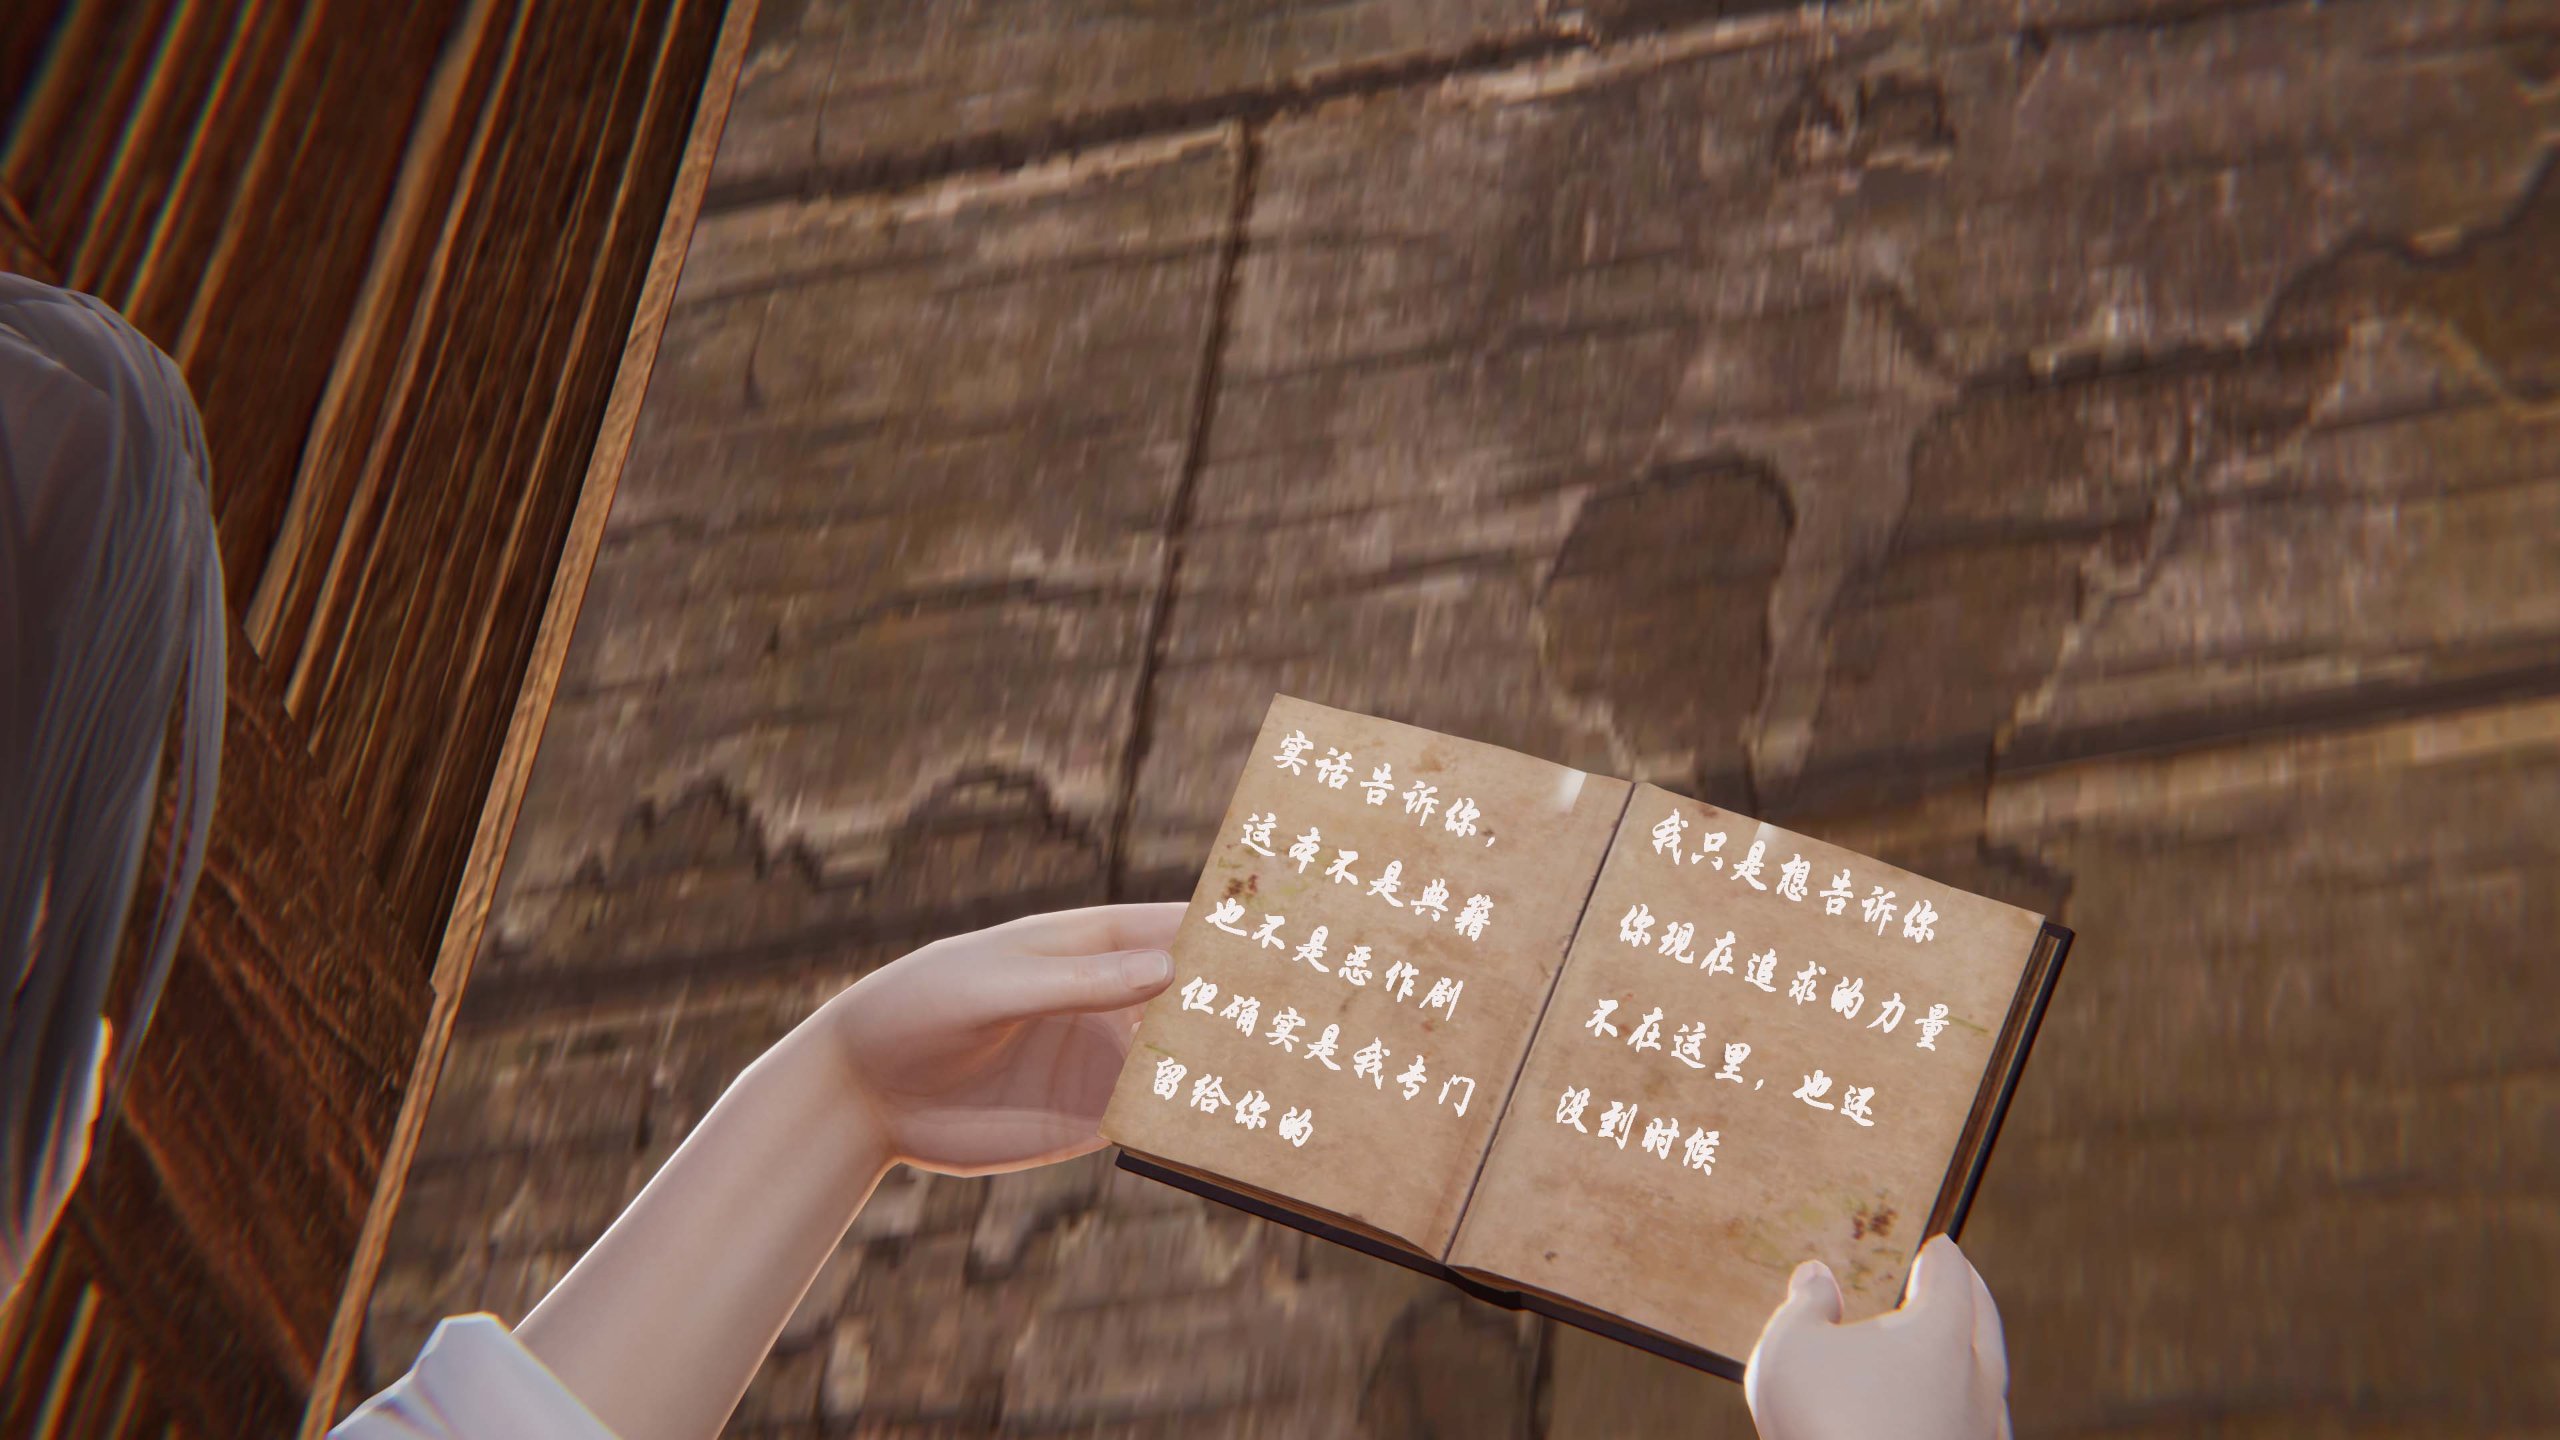 实话告诉你，
这本不是典籍
也不是恶作剧
但确实是我专门
留给你的
我只是想告诉你
你现在追求的力量
不在这里，也还
没到时候